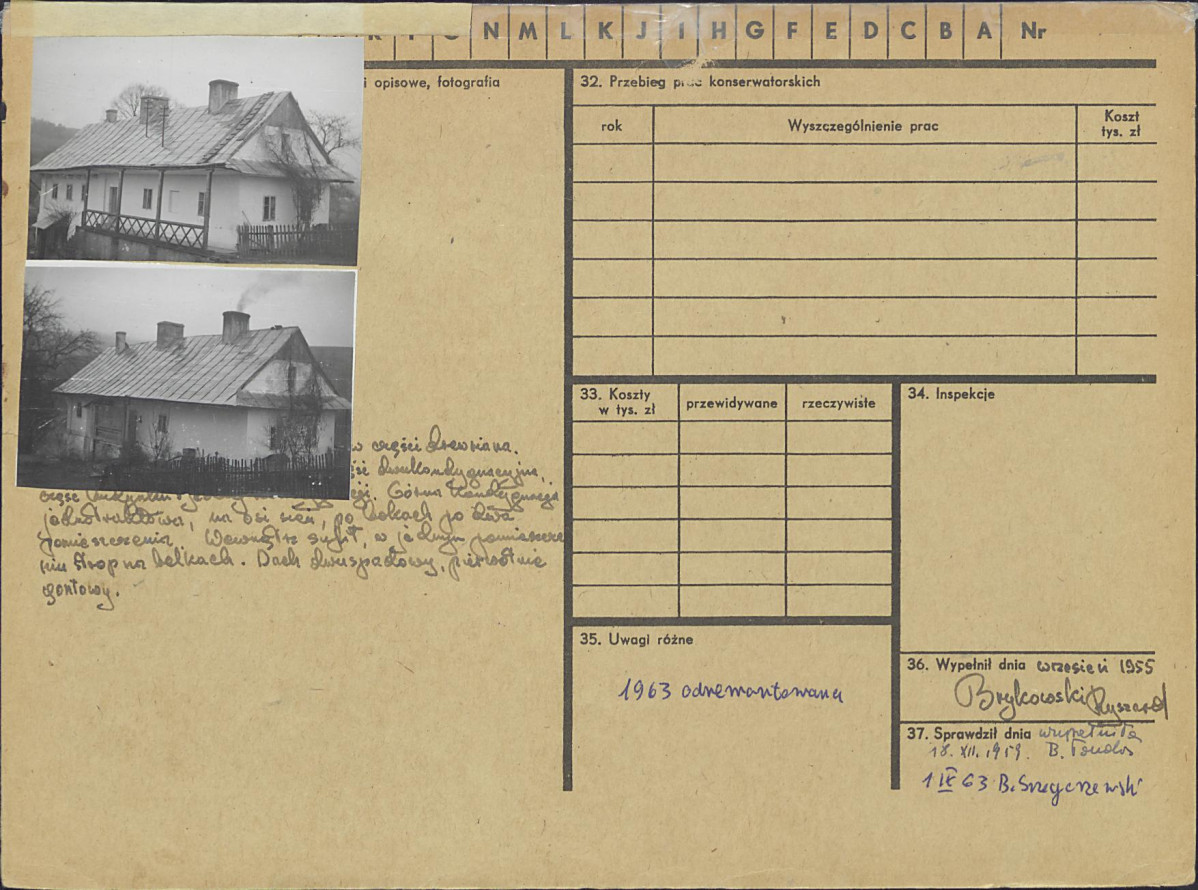 N M L K J I H G F E D C B A Nr
i opisowe, fotografia
w części drewniana.
dwukondygnacyjna,
część Górna kondygnacja
jednotraktowa, na osi sień, po bokach po dwa
pomieszczenia. Wewnątrz sufit, w jednym pomieszcze
niu strop na belkach. Dach dwuspadowy, pierwotnie
gontowy.
32. Przebieg prac konserwatorskich
rok
Wyszczególnienie prac
Koszt
tys. zł
33. Koszty
w tys. zł
przewidywane
rzeczywiste
34. Inspekcje
35. Uwagi różne
1963 odremontowana
36. Wypełnił dnia wrzesień 1955
Brykowski Ryszard
37. Sprawdził dnia uzupełniła
18. XII. 1959. B. Tondos
1 IX 63 B.